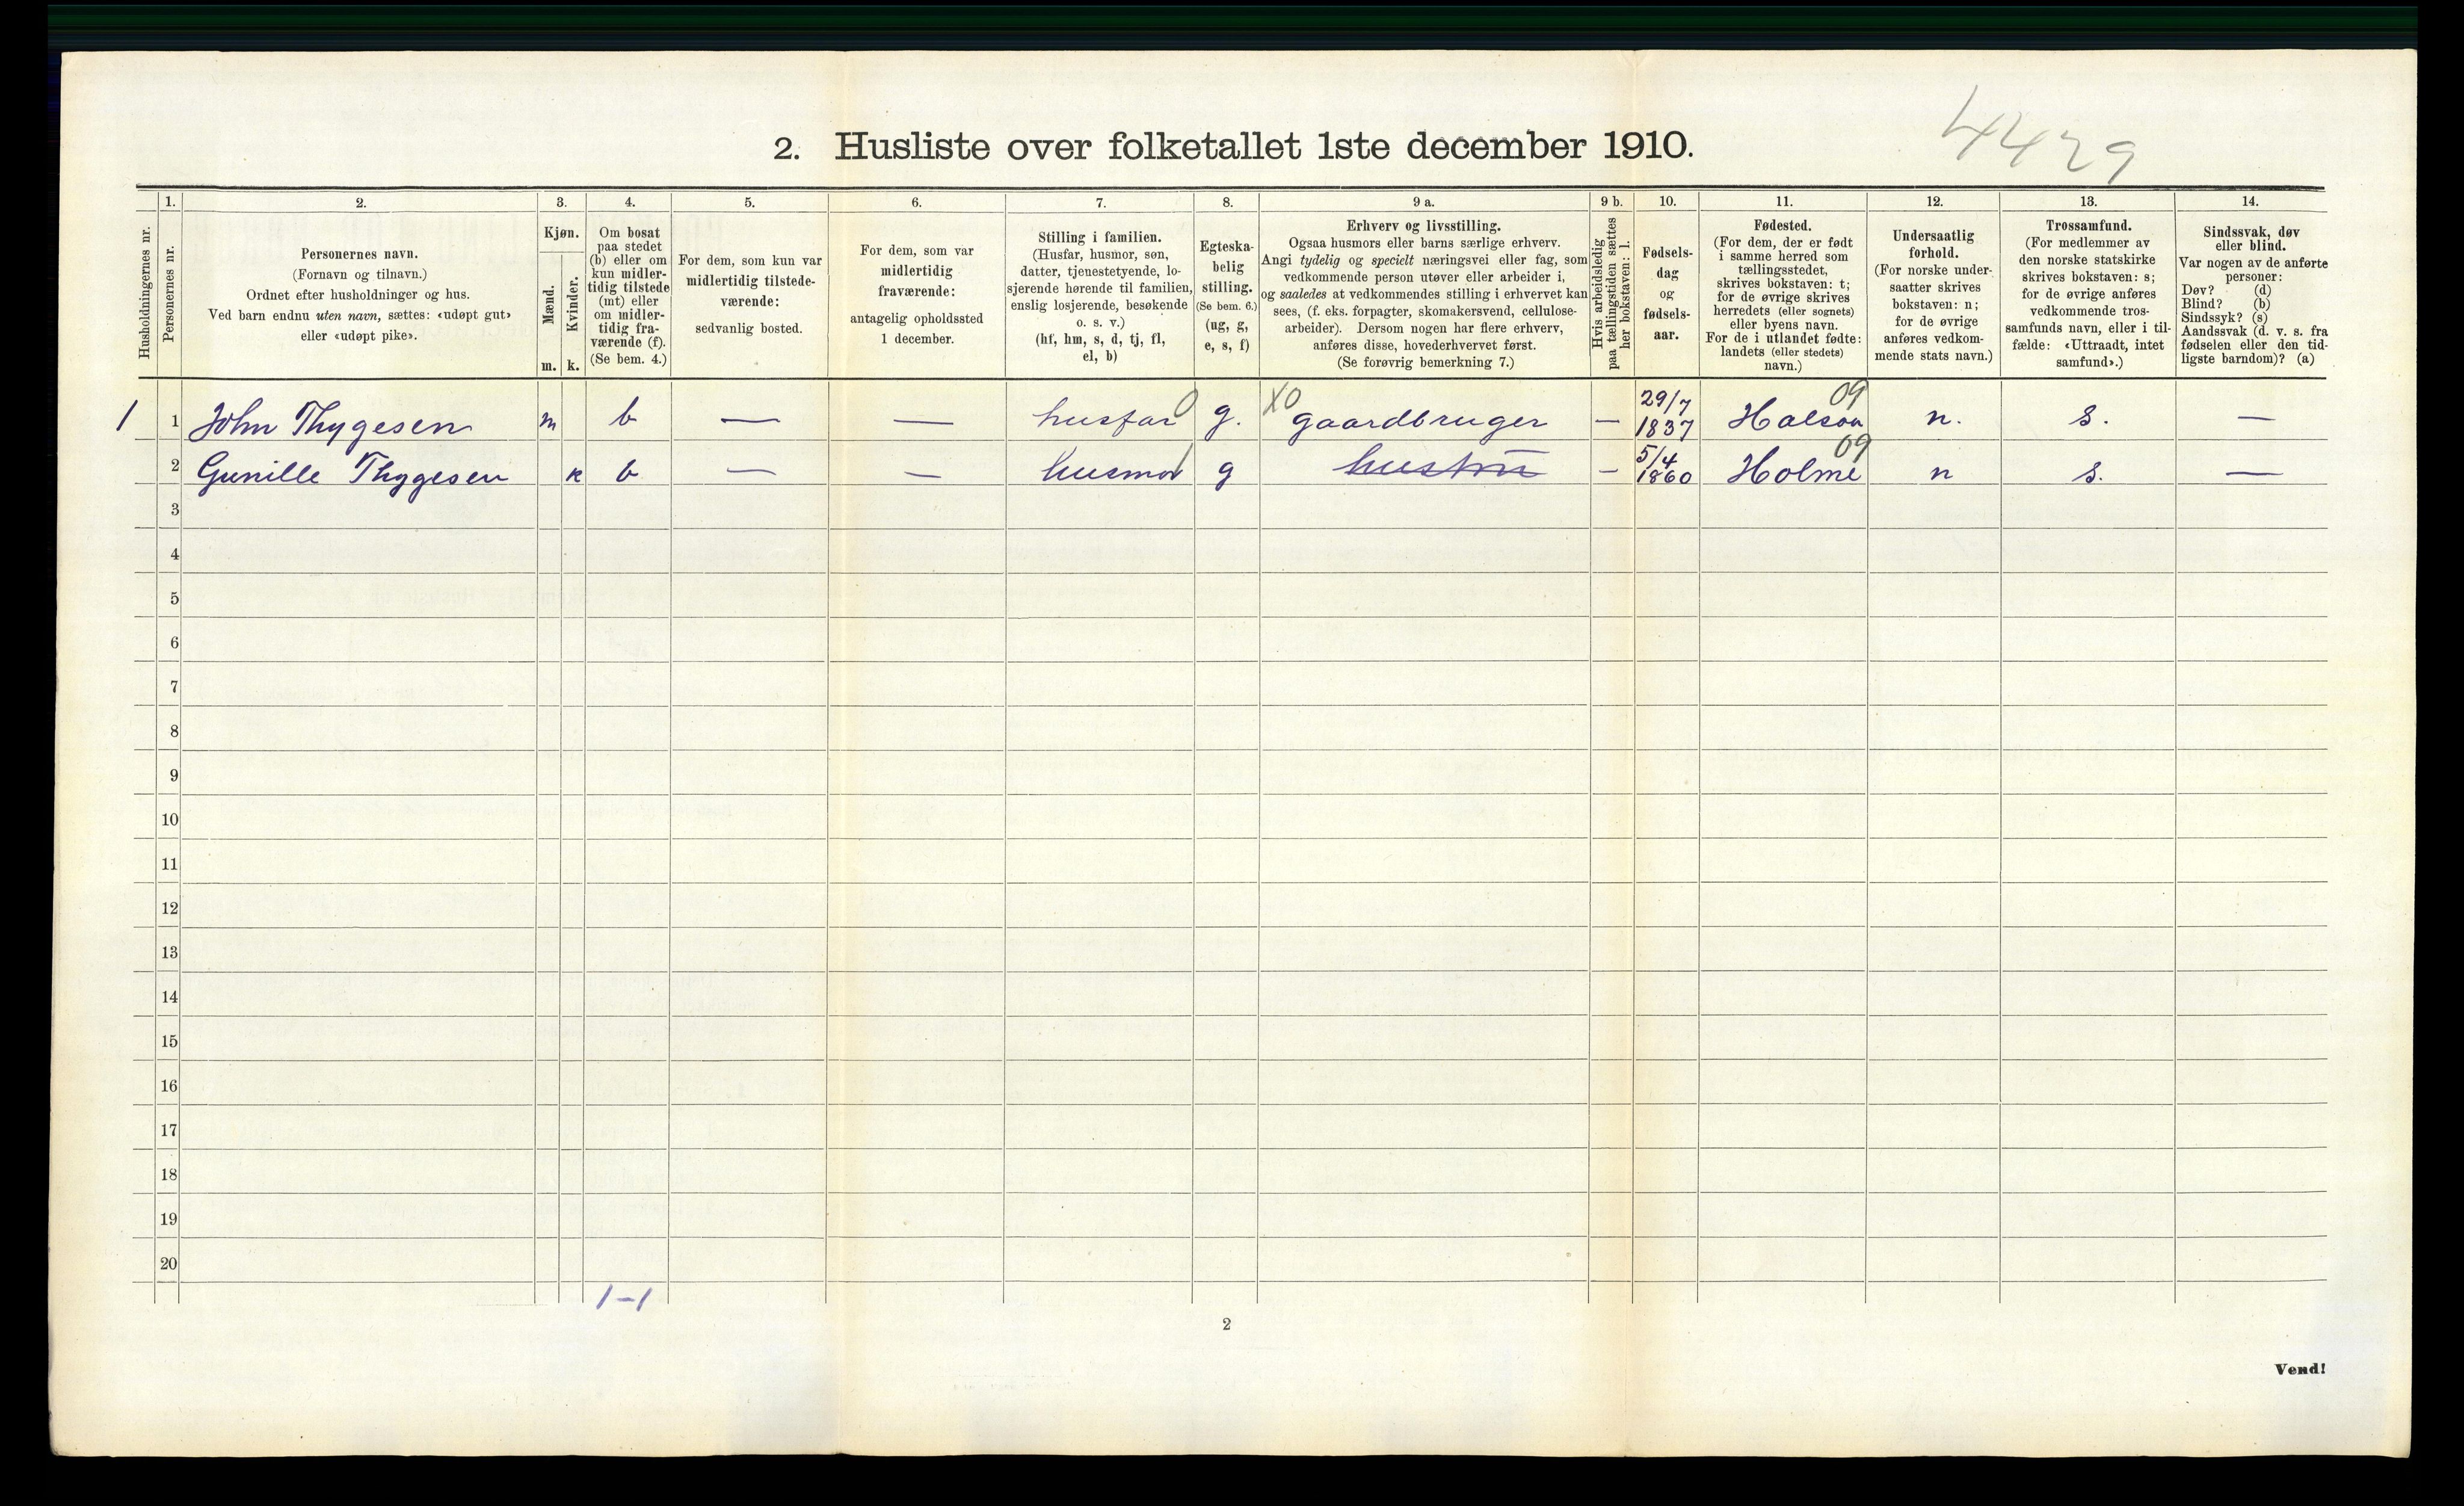 4429
2. Husliste over folketallet 1ste december 1910.
1. 2. 3. 4. 5. 6. 7. 8. 9 a. 9 b. 10. 11. 12. 13. 14.
Husholdningernes nr.
Personernes nr.
Personernes navn.
(Fornavn og tilnavn.)
Ordnet efter husholdninger og hus.
Ved barn endnu uten navn, sættes: «udøpt gut»
eller «udøpt pike».
Kjøn.
Mænd.
Kvinder.
m. k.
Om bosat
paa stedet
(b) eller om
kun midler-
tidig tilstede
(mt) eller
om midler-
tidig fra-
værende (f).
(Se bem. 4.)
For dem, som kun var
midlertidig tilstede-
værende:
sedvanlig bosted.
For dem, som var
midlertidig
fraværende:
antagelig opholdssted
1 december.
Stilling i familien.
(Husfar, husmor, søn,
datter, tjenestetyende, lo-
sjerende hørende til familien,
enslig losjerende, besøkende
o. s. v.)
(hf, hm, s, d, tj, fl,
el, b)
Egteska-
belig
stilling.
(Se bem. 6.)
(ug, g,
e, s, f)
Erhverv og livsstilling.
Ogsaa husmors eller barns særlige erhverv.
Angi tydelig og specielt næringsvei eller fag, som
vedkommende person utøver eller arbeider i,
og saaledes at vedkommendes stilling i erhvervet kan
sees, (f. eks. forpagter, skomakersvend, cellulose-
arbeider). Dersom nogen har flere erhverv,
anføres disse, hovederhvervet først.
(Se forøvrig bemerkning 7.)
Hvis arbeidsledig
paa tællingstiden sættes
her bokstaven: l.
Fødsels-
dag
og
fødsels-
aar.
Fødested.
(For dem, der er født
i samme herred som
tællingsstedet,
skrives bokstaven: t;
for de øvrige skrives
herredets (eller sognets)
eller byens navn.
For de i utlandet fødte:
landets (eller stedets)
navn.)
Undersaatlig
forhold.
(For norske under-
saatter skrives
bokstaven: n;
for de øvrige
anføres vedkom-
mende stats navn.)
Trossamfund.
(For medlemmer av
den norske statskirke
skrives bokstaven: s;
for de øvrige anføres
vedkommende tros-
samfunds navn, eller i til-
fælde: «Uttraadt, intet
samfund».)
Sindssvak, døv
eller blind.
Var nogen av de anførte
personer:
Døv? (d)
Blind? (b)
Sindssyk? (s)
Aandssvak (d. v. s. fra
fødselen eller den tid-
ligste barndom)? (a)
1 1 John Thygesen m b — — husfar 0 g. X0 gaardbruger — 29/7 1837 Halsaa 09 n. s. —
2 Gunille Thygesen k b — — husmor g hustru — 5/4 1860 Holme 09 n s. —
3
4
5
6
7
8
9
10
11
12
13
14
15
16
17
18
19
20
1-1
2
Vend!